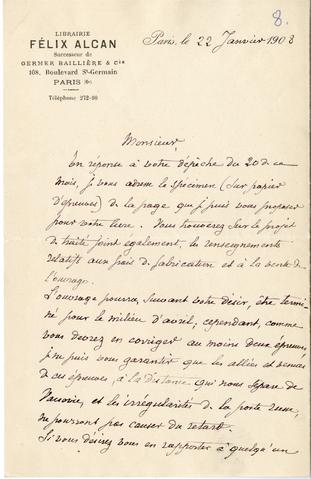 8.
LIBRAIRIE
FÉLIX ALCAN
Successeur de
GERMER BAILLIÈRE & Cie
108, Boulevard St-Germain
PARIS (6e)
Téléphone 272-00
Paris, le 22 Janvier 1903
Monsieur,
En réponse à votre dépêche du 20 de ce
mois, je vous adresse le spécimen (sur papier
d'épreuves) de la page que je puis vous proposer
pour votre livre. Vous trouverez sur le projet
de traité joint également, les renseignements
relatifs aux frais de fabrication et à la vente de
l'ouvrage.
L'ouvrage pourra, suivant votre désir, être termi
né pour le milieu d'avril, cependant, comme
vous devrez en corriger au moins deux épreuves,
je ne puis vous garantir que les allées et venues
de ces épreuves, à la distance qui nous sépare de
Varsovie, et les irrégularités de la poste russe,
ne pourront pas causer du retard.
Si vous désirez vous en rapporter à quelqu'un